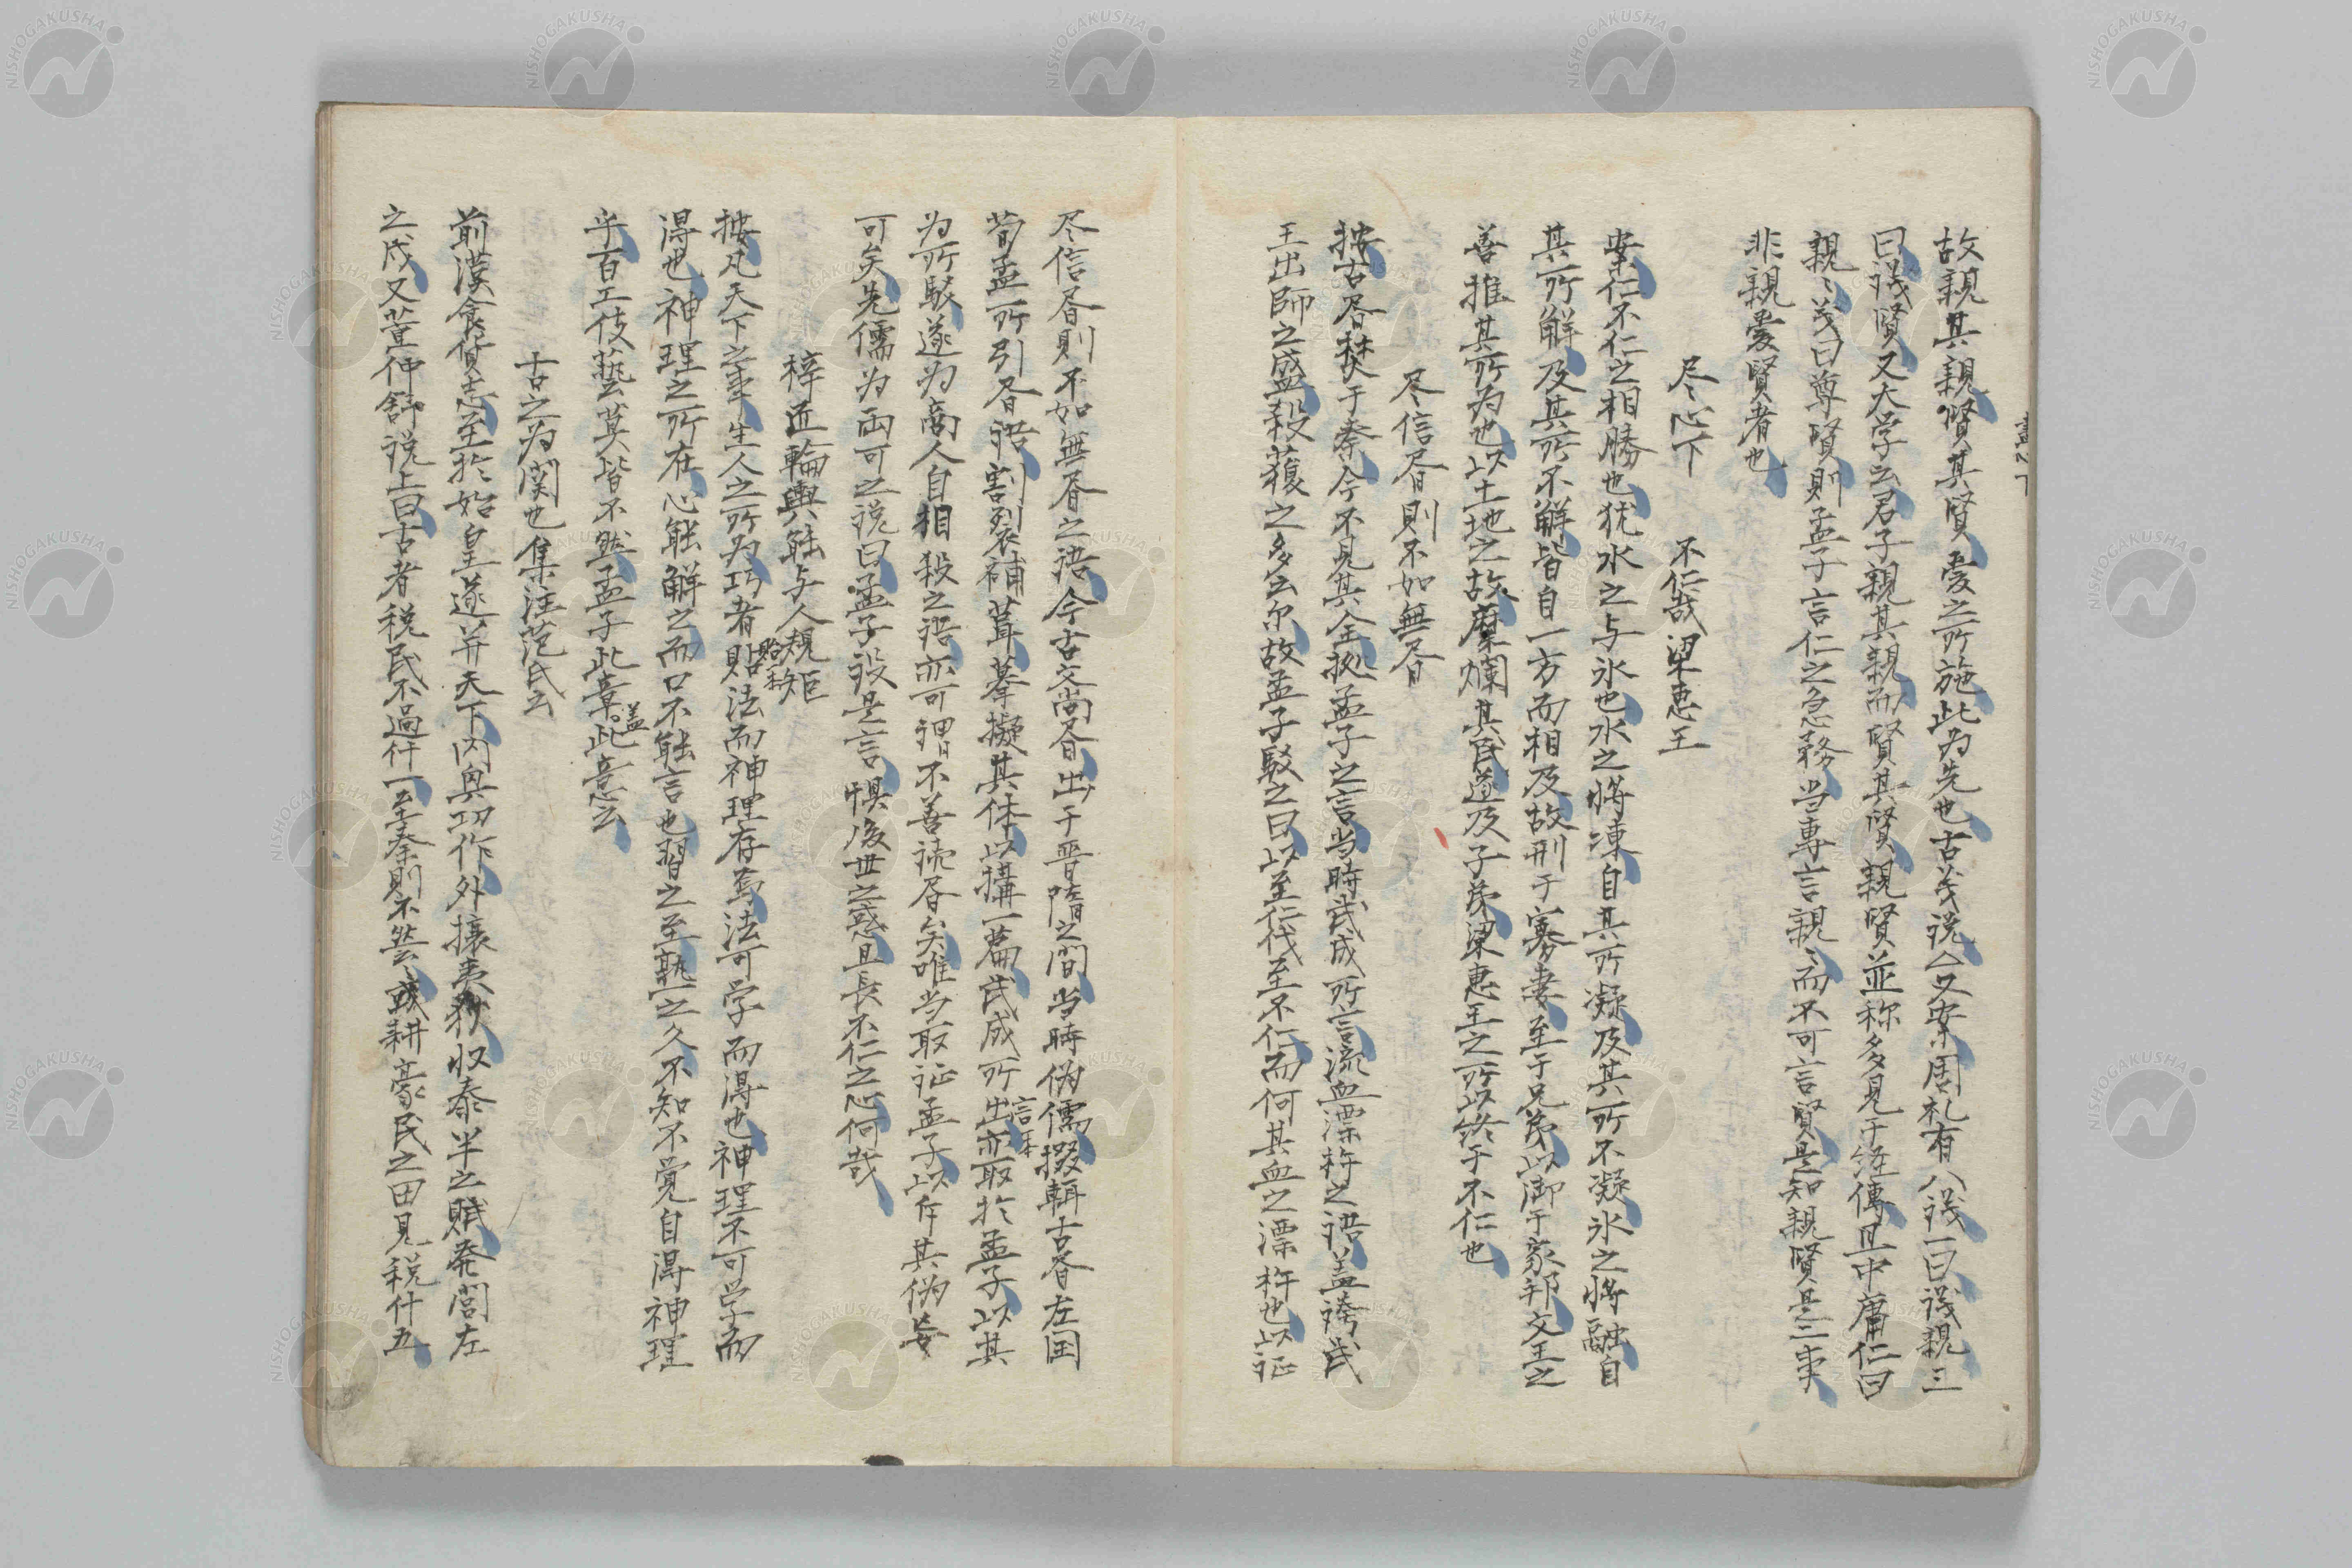 盡心下
故親其親賢其賢愛之所施此為先也古義說〈又案周礼有八議一曰議親三
曰議賢又大学云君子親其親而賢其賢親賢並称多見于経傳且中庸仁曰
親〻義曰尊賢則孟子言仁之急務当専言親〻而不可言賢是知親賢是二事
非親愛賢者也
尽心下　不仁哉梁恵王
案仁不仁之相勝也犹水之与氷也水之将凍自其所凝及其所不凝氷之将融自
其所解及其所不解皆自一方而相及故刑于寡妻至于兄弟以御于家邦文王之
善推其所為也以土地之故糜爛其民遂及子弟梁恵王之所以終于不仁也
尽信書則不如無書
按古書焚于秦今不見其全拠孟子之言当時武成所言流血漂杵之語盖誇武
王出師之盛殺獲之多云尔故孟子駁之曰以至仁伐至不仁而何其血之漂杵也以征
尽信書則不如無書之語今古文尚書出于晋隋之間当時偽儒掇輯古書左国
荀孟所引書語割裂補葺摹擬其体以構一篇武成所出亦取於孟子以其
言本
為所駁遂為商人自相殺之語亦可謂不善読書矣唯当取征孟子以斥其偽妄
可矣先儒為両可之説曰孟子設是言惧後世之惑且長不仁之心何哉
梓匠輪輿能与人規矩
按凡天下之事生人之所為巧者貽法而神理存焉法可学而得也神理不可学而
得也神理之所在心能解之而口不能言也習之至熟之久不知不覚自得神理
乎百工伎藝莫皆不然孟子此章盖此意云
古之為関也集注范氏云
前漢食貨志至於始皇遂并天下内興功作外攘夷狄収泰半之賦発閭左
之戍又董仲舒説上曰古者税民不過什一至秦則不然或耕豪民之田見税什五
NISHOGAKUSHA